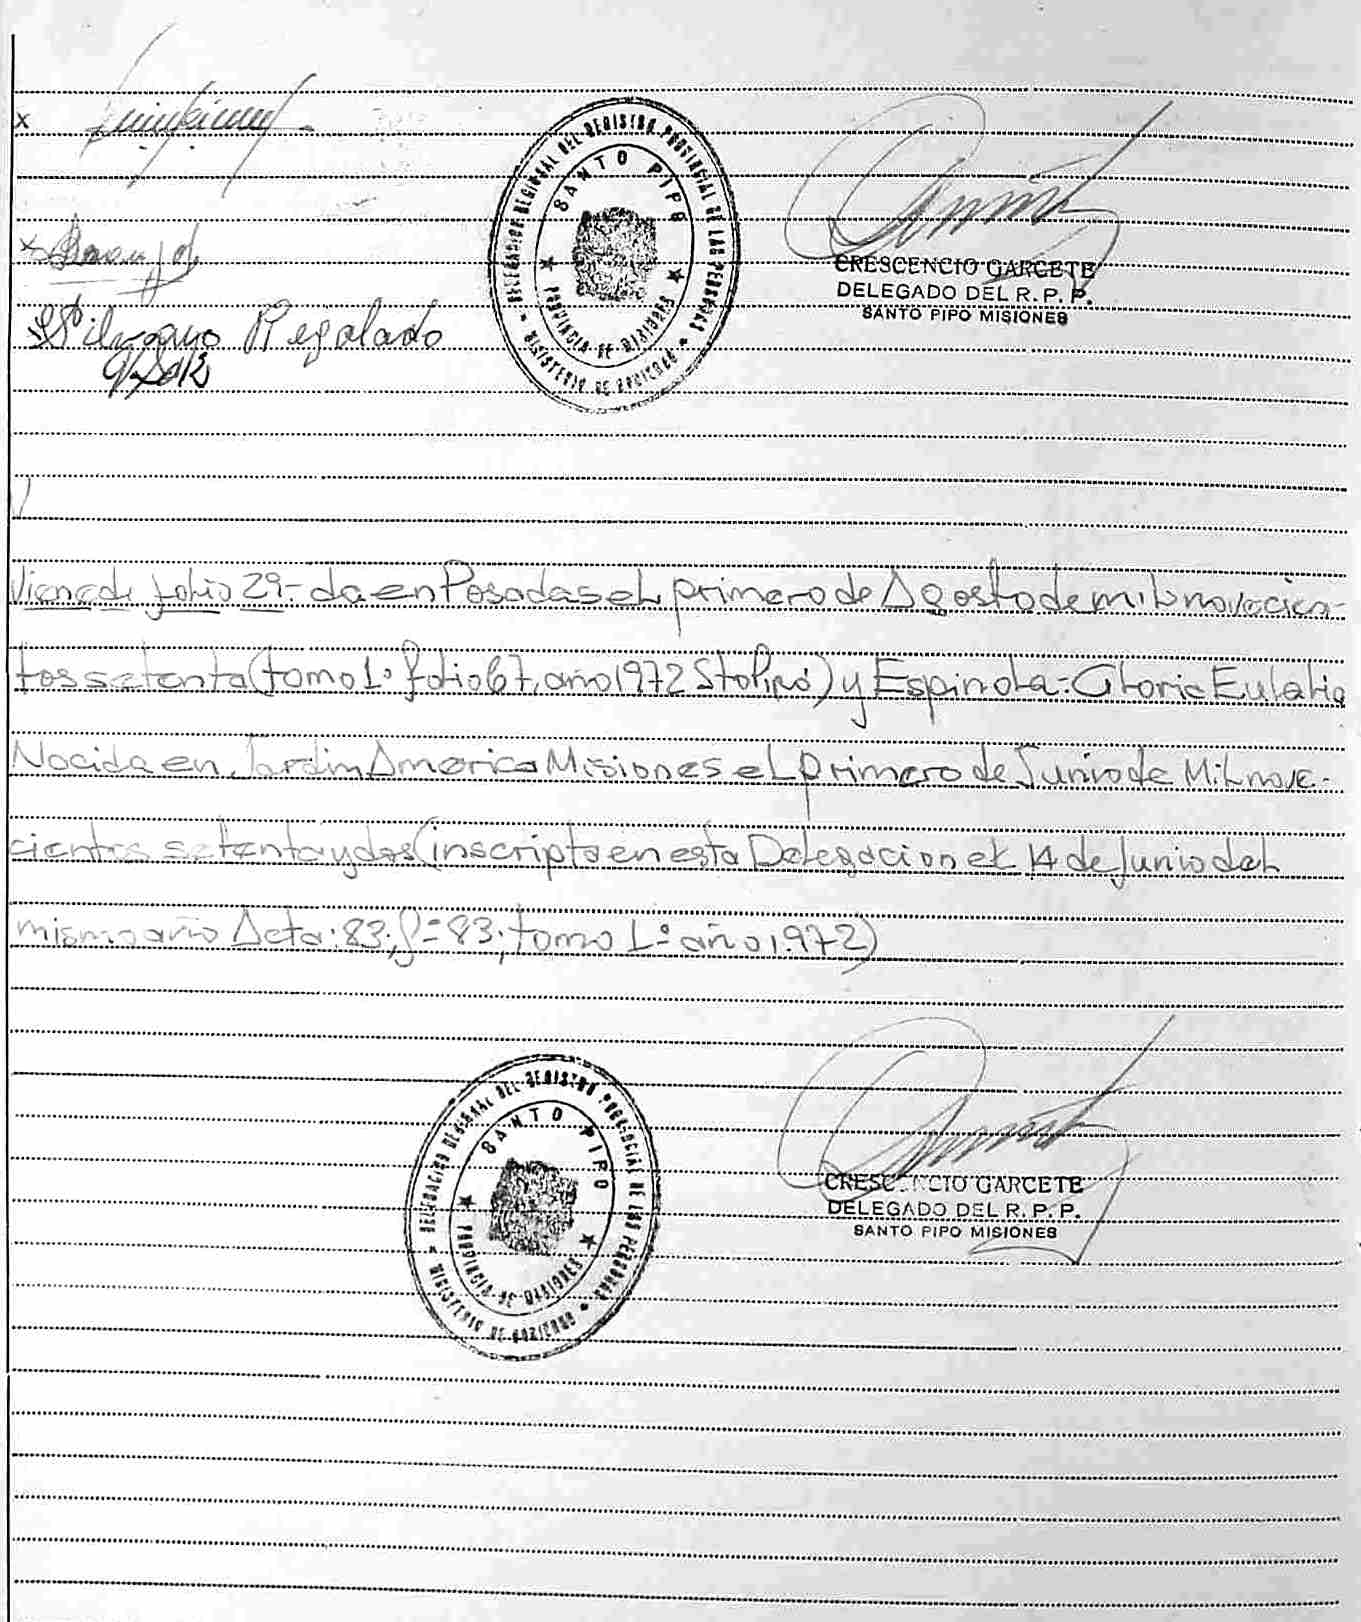 x
x
x Silvano Regalado
DELEGACION REGIONAL DEL REGISTRO PROVINCIAL DE LAS PERSONAS
MINISTERIO DE GOBIERNO
SANTO PIPO
PROVINCIA DE MISIONES
CRESCENCIO GARCETE
DELEGADO DEL R. P. P.
SANTO PIPO MISIONES
Viene de folio 29.- da en Posadas el primero de Agosto de mil novecien-
tos setenta (tomo 1º folio 67, año 1972 Sto Pipó) y Espinola: Gloria Eulalia
Nacida en Jardin America Misiones el primero de Junio de Mil nove-
cientos setenta y dos (inscripta en esta Delegacion el 14 de Junio del
mismo año Acta: 83, fº 83, tomo 1º año 1.972)
DELEGACION REGIONAL DEL REGISTRO PROVINCIAL DE LAS PERSONAS
MINISTERIO DE GOBIERNO
SANTO PIPO
PROVINCIA DE MISIONES
CRESCENCIO GARCETE
DELEGADO DEL R. P. P.
SANTO PIPO MISIONES